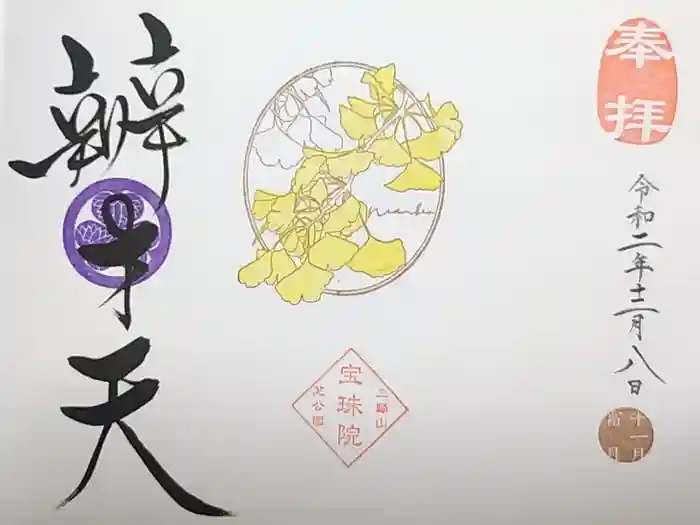 奉拝
令和二年十二月八日
十一月
辨才天
宝珠院
三縁山
芝公園